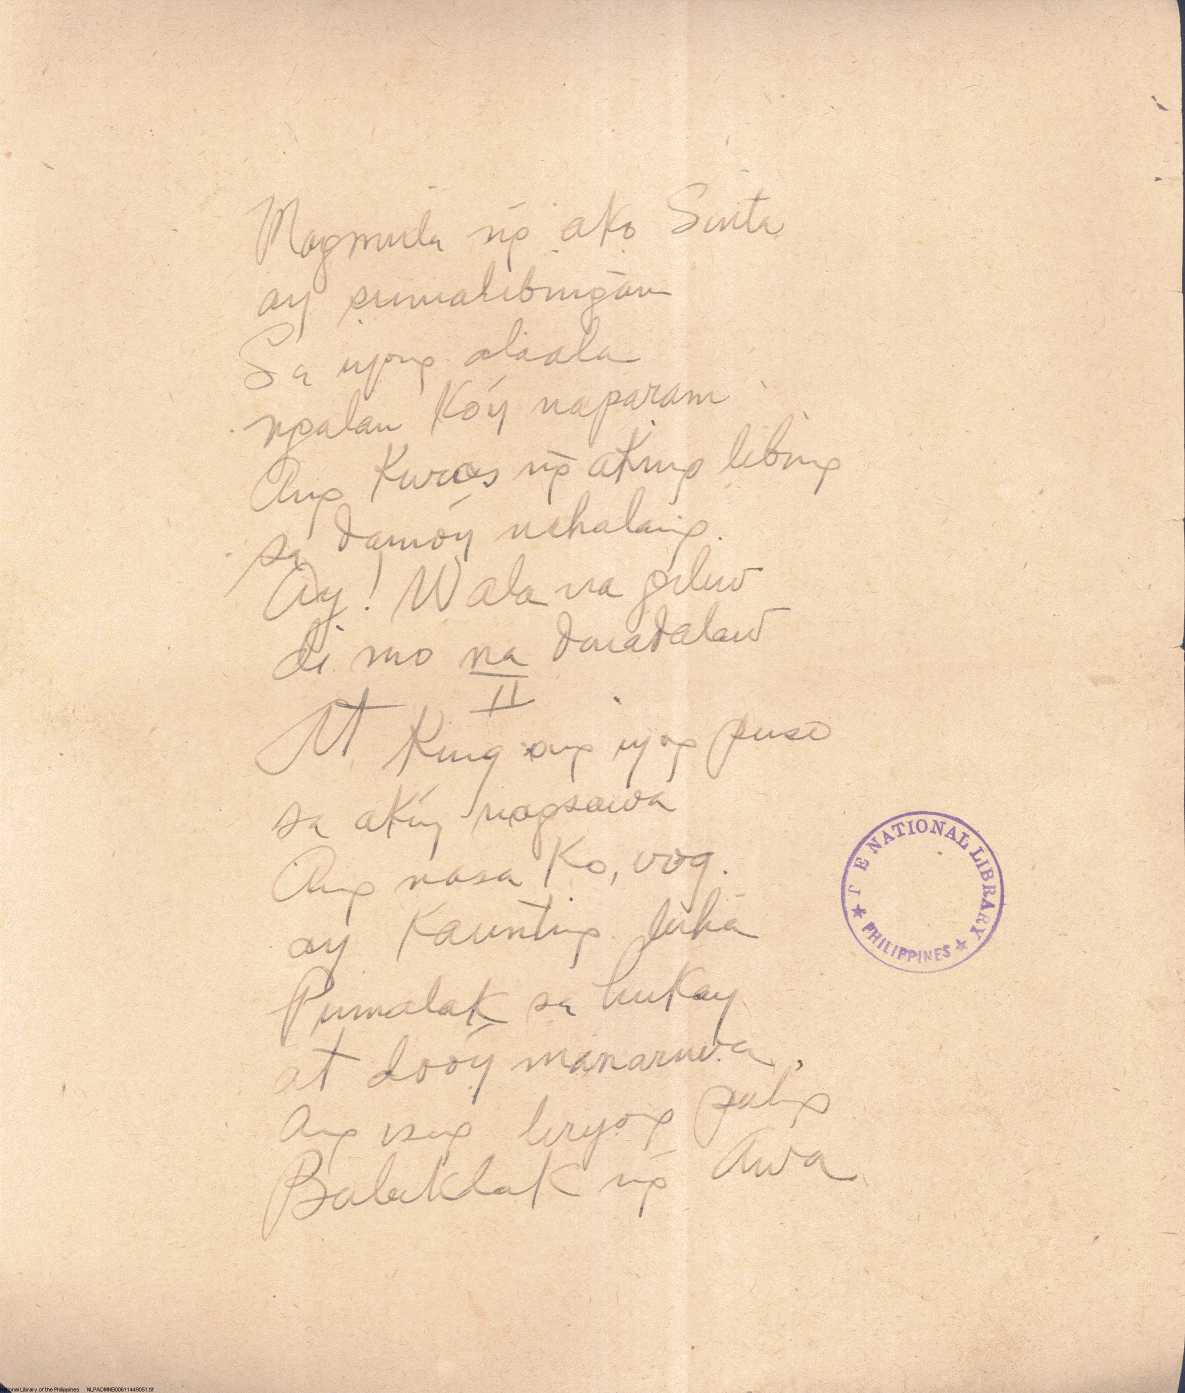 Magmula ng̃ ako Sinta
ay sumalibing̃an
Sa iyong alaala
ngalan Kóy naparam
Ang Kuros ng̃ aking libing
sa damóy nahalang.
Ay! Wala na giliw
di mo na dinadalaw
II
At Kung ang iyong puso
sa akíy nagsawa
Ang nasa Ko, irog.
ay Kaunting luha
Pumatak sa hukay
at dóoy manariwa,
Ang isang liryong
Bulaklak ng̃ Awa
THE NATIONAL LIBRARY
PHILIPPINES
National Library of the Philippines